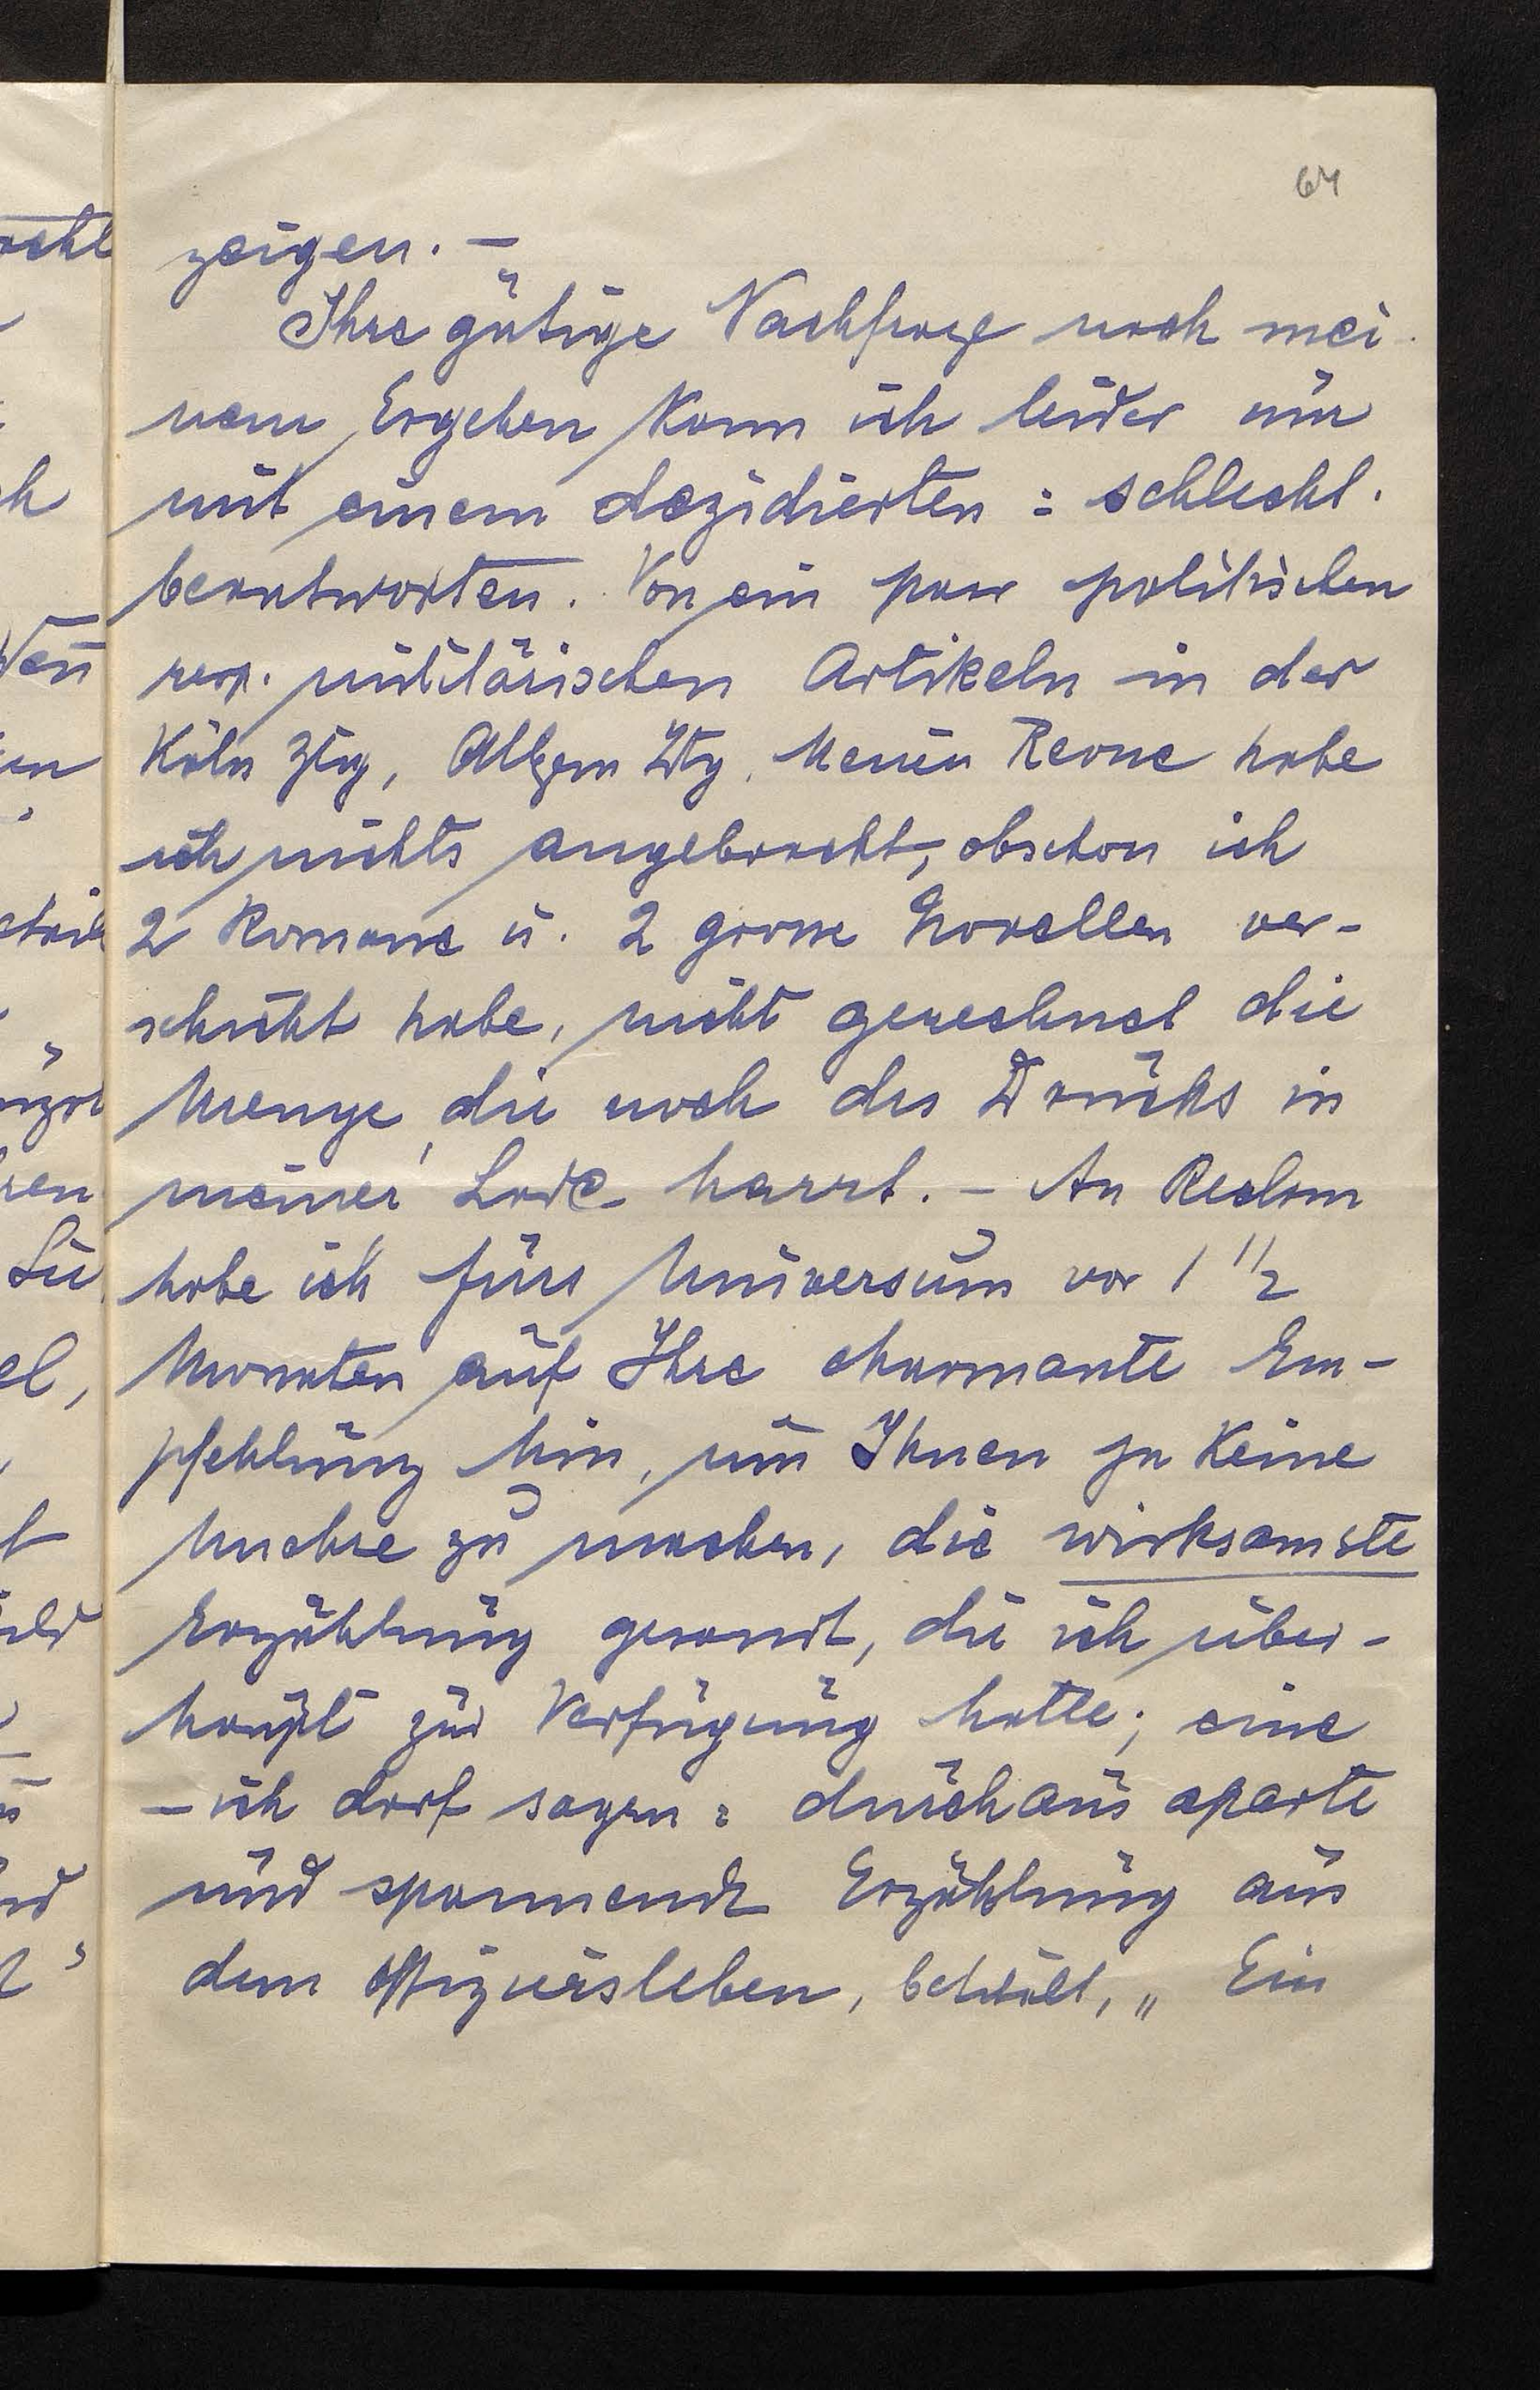 64
zeigen. —
Ihre gütige Nachfrage nach mei-
nem Ergehen kann ich leider nur
mit einem dezidierten: schlecht.
beantworten. Von ein paar politischen
resp. militärischen Artikeln in der
Köln Ztg, Allgem Ztg, Neuen Revue habe
ich nichts angebracht, obschon ich
2 Romane u. 2 grosse Novellen ver-
schickt habe, nicht gerechnet die
Menge, die noch des Drucks in
meiner Lade harrt. — An Reclam
habe ich fürs Universum vor 1 1/2
Monaten auf Ihre charmante Em-
pfehlung hin, um Ihnen ja keine
Unehre zu machen, die wirksamste
Erzählung gesandt, die ich über-
haupt zur Verfügung hatte; eine
— ich darf sagen: durchaus aparte
und spannende Erzählung aus
dem Offiziersleben, betitelt, „ Ein